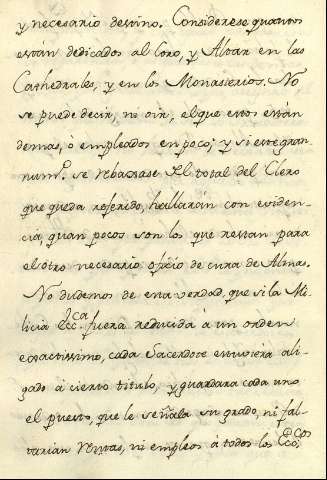 y necesario destino. Considerese quantos
están dedicados al Coro, y Altar en las
Cathedrales, y en los Monasterios. No
se puede decir, ni oir, el que estos están
demas, ò empleados en poco; y si este gran
num.º se rebaxase del total del Clero
que queda referido, hallarán con eviden-
cia quan pocos son los que restan para
el otro necesario ofício de cura de Almas.
No dudemos de esta verdad, que si la Mi-
licia Ecc.ca fuera reducida à un orden
exactissimo, cada Sacerdote estuviera ali-
gado à cierto titulo, y guardara cada uno
el puesto, que le señala su grado, ni fal-
tarian rentas, ni empleos à todos los Ecc.cos